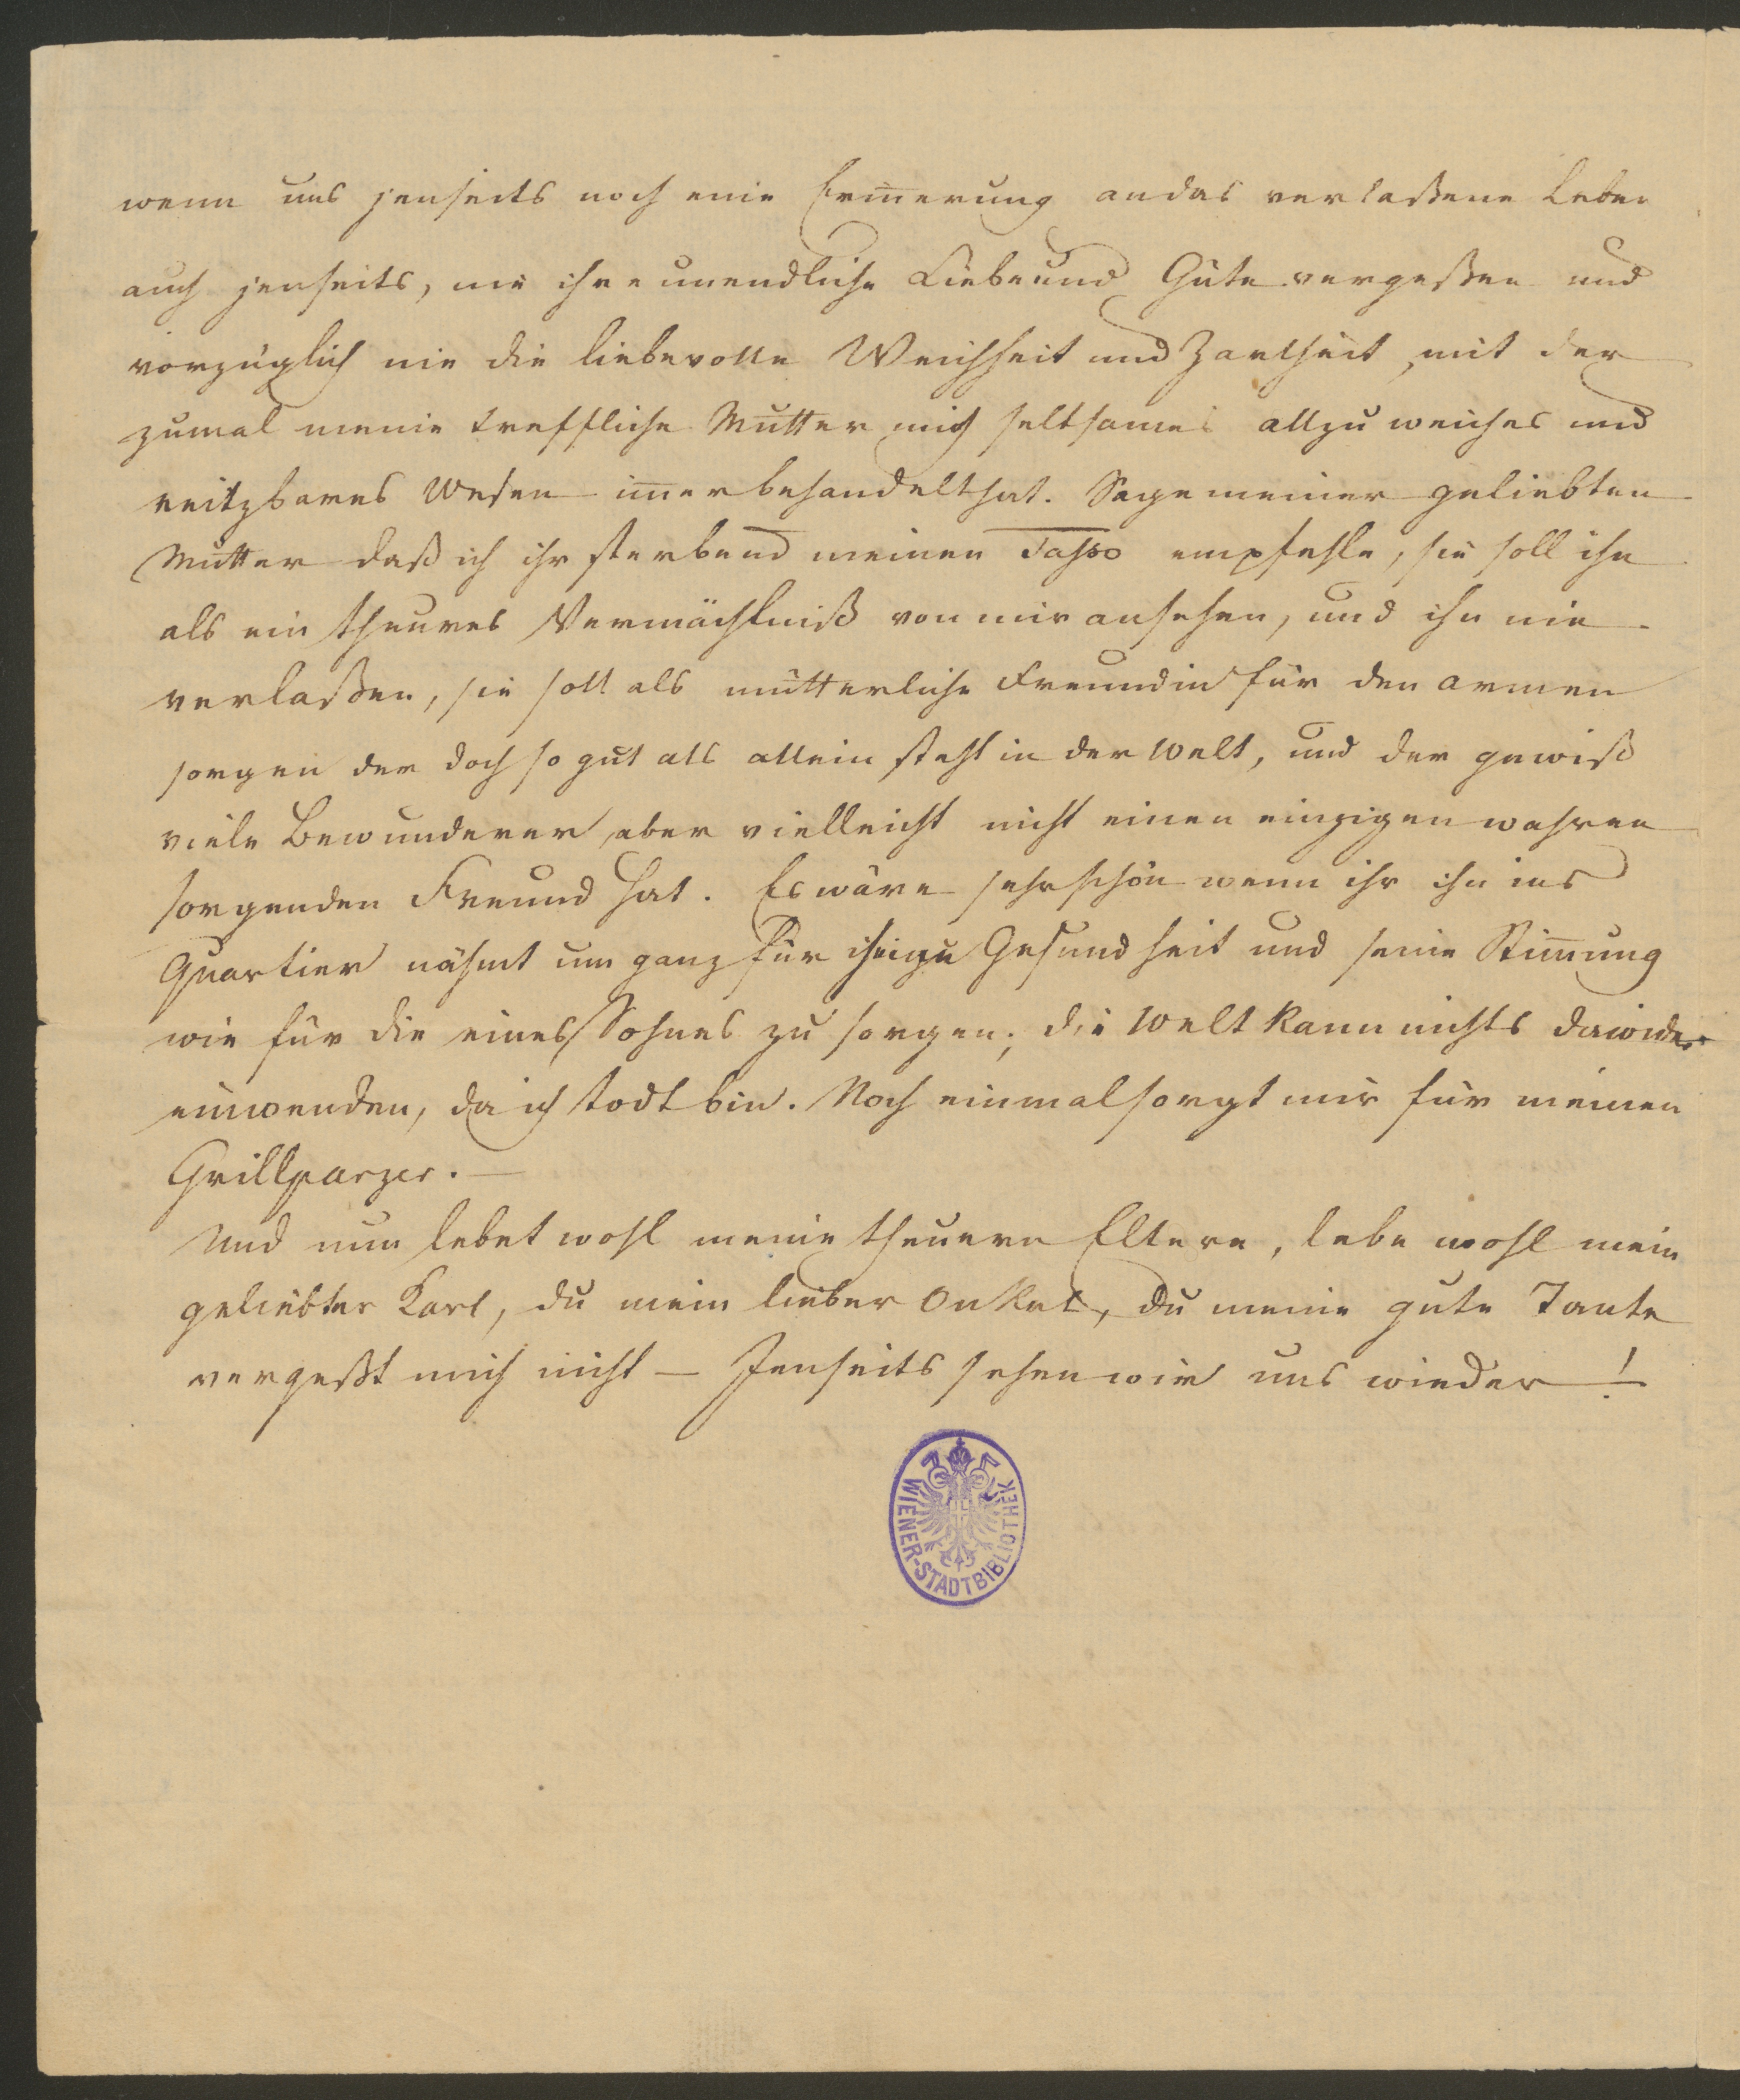 wenn uns jenseits noch eine Erin̄erung an das verlaßene Leben
auch jenseits, nie ihre unendliche Liebe und Güte vergeßen und
vorzüglich nie die liebevolle Weichheit und Zartheit, mit der
zumal meine treffliche Mutter mich seltsames allzu weiches und
reitzbares Wesen im̄er behandelt hat. Sage meiner geliebten
Mutter daß ich ihr sterbend meinen Tasso empfehle, sie soll ihn
als ein theures Vermächtniß von mir ansehen, und ihn nie
verlaßen, sie soll als mütterliche Freundin für den armen
sorgen der doch so gut als allein steht in der Welt, und der gewiß
viele Bewunderer, aber vielleicht nicht einen einzigen wahren
sorgenden Freund hat. Es wäre sehr schön wenn ihr ihn ins
Quartier nähmt um ganz für Gesundheit und seine Stim̄ung
wie für die eines Sohnes zu sorgen; die Welt kann nichts dawider
einwenden, da ich todt bin. Noch einmal sorgt mir für meinen
Grillparzer. —
Und nun lebet wohl meine theuern Eltern, lebe wohl mein
geliebter Karl, du mein lieber Onkel, du meine gute Tante
vergeßt mich nicht — Jenseits sehen wir uns wieder!
WIENER-STADTBIBLIOTHEK